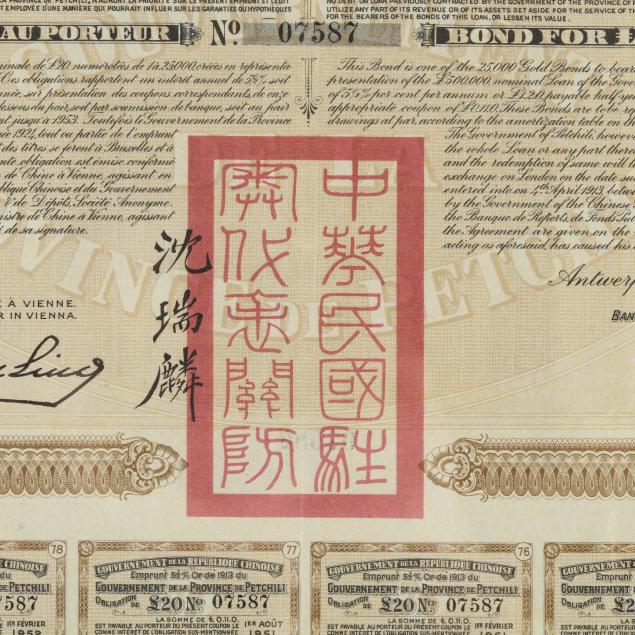 A PROVINCE DE PETCHILI, N'AURONT LA PRIORITÉ SUR LE PRÉSENT EMPRUNT ET LEUR
D'UNE MANIÈRE QUI POURRAIT INFLUER SUR LES GARANTIES OU HYPOTHÈQUES
AU PORTEUR
Nº 07587
NO DEBT OR LOAN PREVIOUSLY CONTRACTED BY THE GOVERNMENT OF THE PROVINCE OF
UTILIZE ANY PART OF ITS REVENUE OR OF ITS ASSETS SET ASIDE FOR THE SERVICE OF
FOR THE BEARERS OF THE BONDS OF THIS LOAN, OR LESSEN ITS VALUE.
BOND FOR £
minale de £20. numérotées de 1 à 25.000, créés en représenta
Ces obligations rapportent un intérêt annuel de 5½%, soit
année, sur présentation des coupons correspondants, de onze
dessous du pair, soit par soumission de banque, soit au pair
t jusqu'à 1953. Toutefois le Gouvernement de la Province
née 1921, tout ou partie de l'emprunt
t des titres se feront à Bruxelles et à
nte obligation est émise conformé
de Chine à Vienne, agissant en
blique Chinoise et du Gouvernement
V de Dépôts, Société Anonyme.
nistre de Chine à Vienne, agissant
é de sa signature.
This Bond is one of the 25,000 Gold Bonds to bear
presentation of the £500,000 nominal Loan of the Gove
of 5½ per cent per annum or £1.2.0, payable half-year
appropriate coupon of £0.11.0. These Bonds are both
drawings at par, according to the amortization table on
The Government of Petchili, however
the whole Loan or any part thereof
and the redemption of same will be
exchange on London on the date such
entered into on 4th April 1913, between
by the Government of the Chinese
the Banque de Reports, de Fonds Publics
the Agreement are given on the
acting as aforesaid, has caused his
Antwerp
BAN
DE LA
VINCE DE PETCH
中華民國駐
奧代表關防
沈瑞麟
E À VIENNE.
R IN VIENNA.
Ling
78
7587
1ER FÉVRIER
1952
77
GOUVERNEMENT DE LA REPUBLIQUE CHINOISE
Emprunt 5½% Or de 1913 du
GOUVERNEMENT DE LA PROVINCE DE PETCHILI
OBLIGATION DE £20 Nº 07587
LA SOMME DE £ 0.11.0.
EST PAYABLE AU PORTEUR DU PRÉSENT COUPON LE
COMME INTÉRÊT DE L'OBLIGATION SUS-MENTIONNÉE
1ER AOÛT
1951
76
GOUVERNEMENT DE LA REPUBLIQUE CHINOISE
Emprunt 5½% Or de 1913 du
GOUVERNEMENT DE LA PROVINCE DE PETCHILI
OBLIGATION DE £20 Nº 07587
LA SOMME DE £ 0.11.0.
EST PAYABLE AU PORTEUR DU PRÉSENT COUPON LE
COMME INTÉRÊT DE L'OBLIGATION SUS-MENTIONNÉE
1ER FÉVRIER
1951
GOUVERNEM
Empru
GOUVERNEM
OBLIGATION DE
EST PAYABLE AU
COMME INTÉRÊT